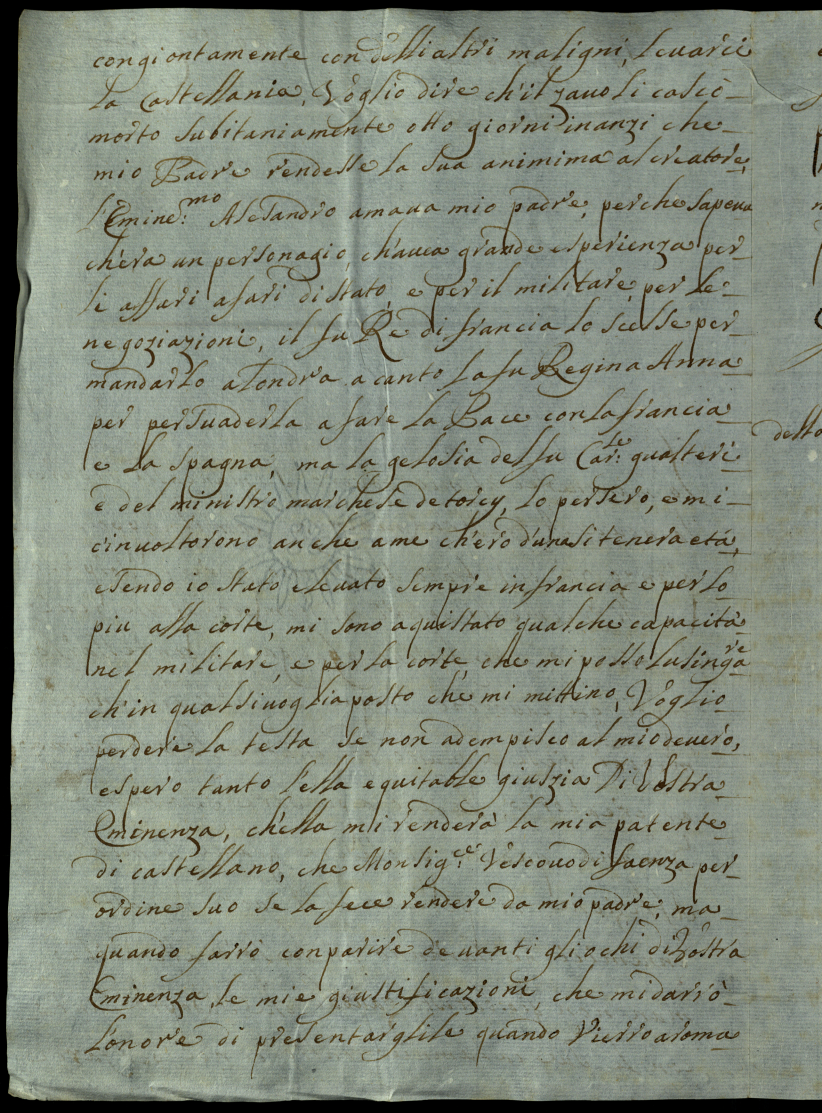 congiontamente con dellialtri maligni, levarci
la Castellania, Voglio dire ch'il zavoli cascò
morto subitaniamente otto giorni inanzi che
mio Padre rendesse la sua animima al creatore,
l'Emine:mo Alesandro amava mio padre, perche sapeva
ch'era un personagio, ch'avea grande esperienza per
li affari afari di stato, e per il militare, per le
negoziazioni, il fu Re di francia lo scelse per
mandarlo a Londra a canto la fu Regina Anna
per persuaderla a fare la Pace con la francia
e la spagna, ma la gelosia del fu Car:le gualteri
e del ministro marchese de torcy, lo persero, e mi
c'involtorono anche a me ch'ero d'una si tenera età,
esendo io stato elevato sempre in francia e per lo
piu alla corte, mi sono aquistato qualche capacità
nel militare, e per la corte, che mi posso lusingare
ch'in qualsivoglia posto che mi mittino, Voglio
perdere la testa se non adempisco al mio devero,
espero tanto sella equitable giuszia Di Vostra
Eminenza, ch'ella mi renderà la mia patente
di castellano, che Monsig:re Vescovo di faenza per
ordine suo se la fece rendere da mio padre, ma
quando farrò conparire devanti gli ochi di Vostra
Eminenza, le mie giustificazioni, che mi darrò
l'onore di presentarglile quando Vierro a roma
dello